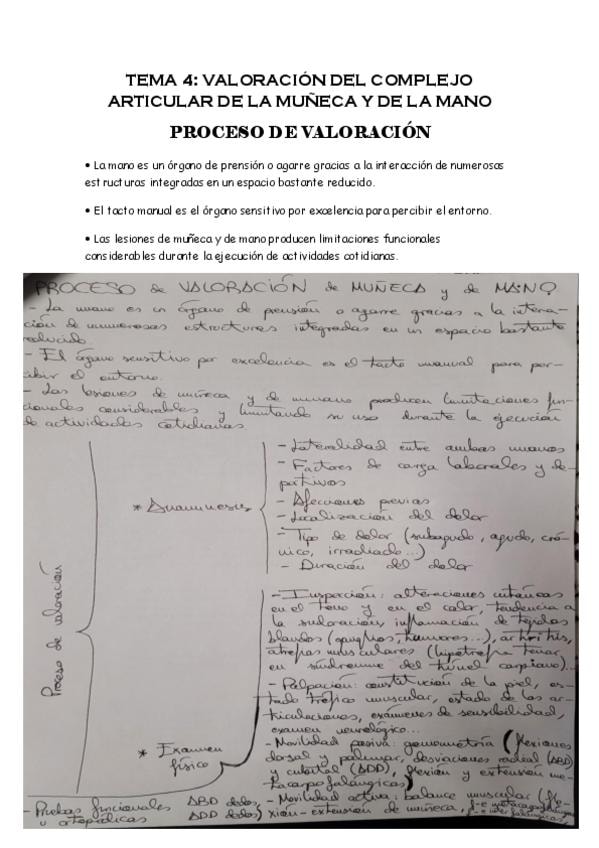 TEMA 4: VALORACIÓN DEL COMPLEJO
ARTICULAR DE LA MUÑECA Y DE LA MANO
PROCESO DE VALORACIÓN
• La mano es un órgano de prensión o agarre gracias a la interacción de numerosas
estructuras integradas en un espacio bastante reducido.
• El tacto manual es el órgano sensitivo por excelencia para percibir el entorno.
• Las lesiones de muñeca y de mano producen limitaciones funcionales
considerables durante la ejecución de actividades cotidianas.
PROCESO de VALORACIÓN de MUÑECA y de MANO
- La mano es un órgano de prensión o agarre gracias a la intera-
cción de numerosas estructuras integradas en un espacio bastante
reducido.
- El órgano sensitivo por excelencia es el tacto manual para per-
cibir el entorno.
- Las lesiones de muñeca y de mano producen limitaciones fun-
cionales considerables y limitando su uso durante la ejecución
de actividades cotidianas
Proceso de valoración
* Anamnesis
- Lateralidad entre ambas manos
- Factores de carga laborales y de-
portivos
- Afecciones previas
- Localización del dolor
- Tipo de dolor (subagudo, agudo, cró-
nico, irradiado...)
- Duración del dolor
* Examen
físico
- Inspección: alteraciones cutáneas
en el tono y en el color, tendencia a
la sudoración, inflamación de tejidos
blandos (ganglios, tumores...), arthritis,
atrofias musculares (hipotrofia tenar,
en síndrome del túnel carpiano)...
- Palpación: constitución de la piel, es-
tado trófico muscular, estado de las ar-
ticulaciones, exámenes de sensibilidad,
examen neurológico...
- Movilidad pasiva: goniometría (flexiones
dorsal y palmar, desviaciones radial (ABD)
y cubital (ADD), flexión y extensión me-
tacarpofalángicas)
- Movilidad activa: balance muscular (fle-
xión-extensión de muñeca, f-e metacarpofalángicas,
f-e interfalángicas,
ABD dedos,
ADD dedos)
- Pruebas funcionales
u ortopédicas